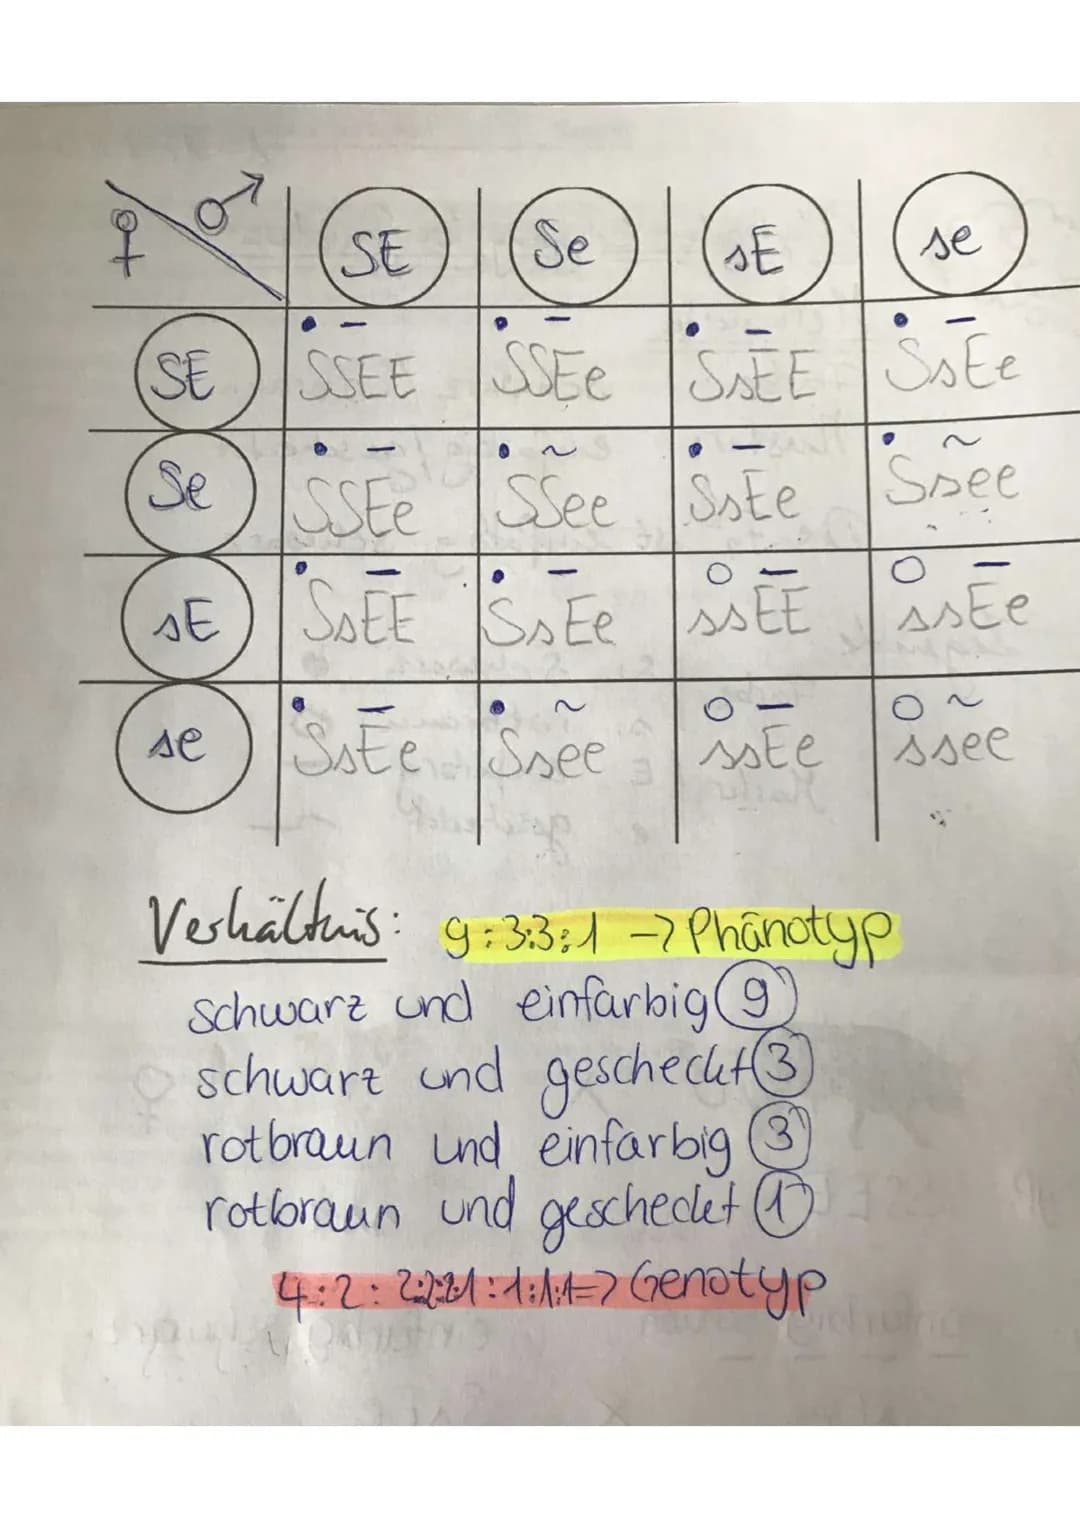 ♀ ♂ SE Se sE se
SE SSEE SSEe SsEE SsEe
Se SSEe SSee SsEe Ssee
sE SsEE SsEe ssEE ssEe
se SsEe Ssee ssEe ssee
Verhältnis: 9:3:3:1 -> Phänotyp
schwarz und einfarbig 9
schwarz und gescheckt 3
rotbraun und einfarbig 3
rotbraun und gescheckt 1
4:2:2:2:2:1:1:1:1=> Genotyp